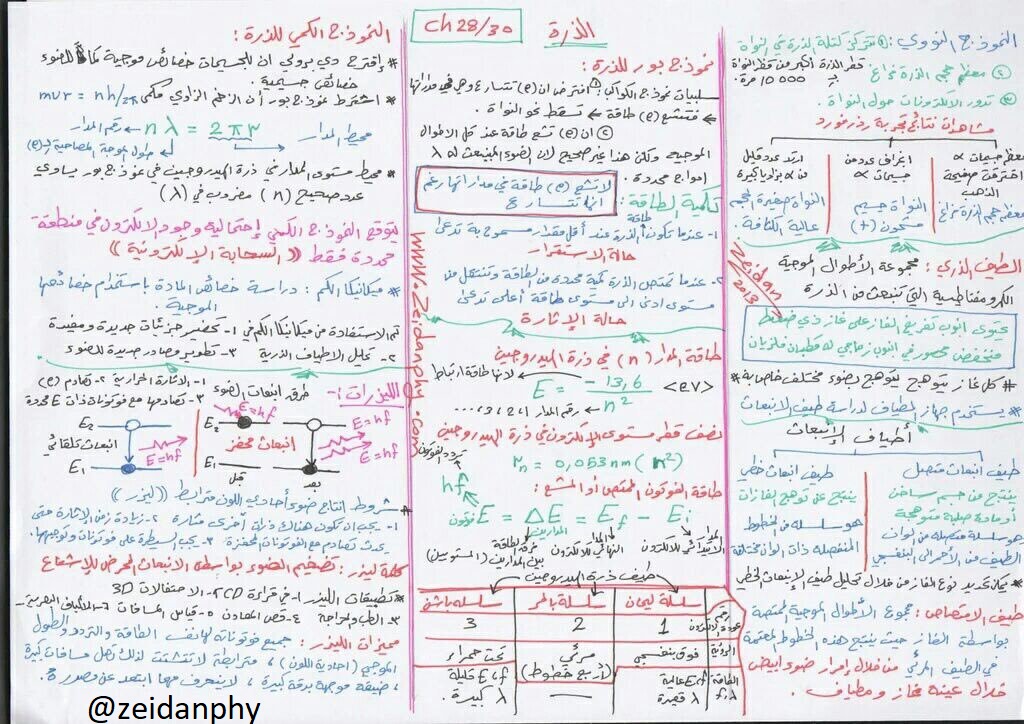 ch 28/30
الذرة
النموذج النووي: ① تتركز كتلة الذرة في النواة
② معظم حجم الذرة فراغ
قطر الذرة أكبر من قطر النواة 10 000 مرة.
③ تدور الالكترونات حول النواة.
مشاهدات نتائج تجربة رذرفورد
معظم جسيمات α اخترقت صفيحة الذهب
معظم حجم الذرة فراغ
انحراف عدد من جسيمات α
النواة جسيم مشحون (+)
ارتد عدد قليل من α بزوايا كبيرة
النواة صغيرة الحجم عالية الكثافة.
الطيف الذري: مجموعة الأطوال الموجية
الكرومغناطيسية التي تنبعث من الذرة
يحتوى انبوب تفريغ الغاز على غاز ذي ضغط
منخفض محصور في انبوب زجاجي له قطبان فلزيان
* كل غاز يتوهج يتوهج بضوء مختلف خاص به
* يستخدم جهاز المطياف لدراسة طيف الانبعاث
أطياف الانبعاث
طيف انبعاث متصل
ينتج من جسم ساخن
أو مادة صلبة متوهجة
وهو سلسلة متصلة من ألوان
الطيف من الأحمر إلى البنفسجي
طيف انبعاث خطي
ينتج عن توهج الغازات
هو سلسلة من الخطوط
المنفصلة ذات الوان مختلفة
* يمكن تحديد نوع الغاز من خلال تحليل طيف الإنبعاث الخطي
طيف الامتصاص: مجموع الأطوال الموجية الممتصة
بواسطة الغاز حيث ينتج هذه الخطوط المعتمة
في الطيف المرئي من خلال إمرار ضوء أبيض
خلال عينة غاز ومطياف.
Zeidan
2013
نموذج بور للذرة:
سلبيات نموذج الكواكب: ① افترض ان (e) تتسارع وهي في مداراتها
فتشع (e) طاقة ← تسقط نحو النواة.
② ان (e) تشع طاقة عند كل الاطوال
الموجية ولكن هذا غير صحيح لان الضوء المنبعث له λ
امواج محددة.
لا تشع (e) طاقة في مدارها رغم
انها تتسارع
كمية الطاقة:
1- عندما تكون طاقة الذرة عند أقل مقدار مسموح به تدعى
حالة الاستقرار
2- عندما تمتص الذرة كمية محددة من الطاقة وتنتقل من
مستوى ادنى الى مستوى طاقة أعلى تدعى
حالة الإثارة
www.Zeidanphy.com
طاقة المدار (n) في ذرة الهيدروجين
لانها طاقة ارتباط
E = -13,6 / n² <eV>
رقم المدار 1،2،3،....
نصف قطر مستوى الإلكترون في ذرة الهيدروجين
rn = 0,053 nm (n²)
طاقة الفوتون الممتص أو المشع:
تردد الفوتون
hf
E فوتون = ΔE = Ef - Ei
فرق الطاقة بين المدارين (المستويين)
المدار النهائي للالكترون
المدار الابتدائي للالكترون
طيف ذرة الهيدروجين
سلسلة ليمان
سلسلة بالمر
سلسلة باشن
رقم عودة الالكترون
1
2
3
الرؤية
فوق بنفسجي
مرئي
(أربع خطوط)
تحت حمراء
الطاقة λ، f
E، f عالية
λ قصيرة
E، f قليلة
λ كبيرة.
النموذج الكمي للذرة:
* اقترح دي برولي ان للجسيمات خصائص موجية كما للضوء
خصائص جسيمية.
* اشترط نموذج بور أن الزخم الزاوي مكمى mvr = nh/2π
رقم المدار
nλ = 2πr
محيط المدار
طول الموجة المصاحبة لـ(e)
* محيط مستوى المدار في ذرة الهيدروجين في نموذج بور يساوي
عدد صحيح (n) مضروب في (λ)
يتوقع النموذج الكمي إحتمالية وجود الالكترون في منطقة
محددة فقط ((السحابة الإلكترونية))
* ميكانيكا الكم: دراسة خصائص المادة باستخدام خصائصها
الموجية.
تم الاستفادة من ميكانيكا الكم في 1- تحضير جزيئات جديدة ومفيدة
2- تحليل الاطياف الذرية 3- تطوير مصادر جديدة للضوء
الليزرات:-
طرق انبعاث الضوء
1- الاثارة الحرارية 2- تصادم (e)
3- تصادمها مع فوتونات ذات E محددة
E2
E1
انبعاث تلقائي
E=hf
E2
E=hf
انبعاث محفز
E1
قبل
بعد
E=hf
E=hf
* شروط انتاج ضوء أحادي اللون مترابط ((ليزر))
1- يجب ان تكون هناك ذرات أخرى مثارة 2- زيادة زمن الإثارة حتى
يحدث تصادم مع الفوتونات المحفزة 3- يجب السيطرة على فوتونات وتوجيهها.
كلمة ليزر: تضخيم الضوء بواسطة الانبعاث المحرض للإشعاع
* تطبيقات الليزر 1- في قراءة CD 2- الاحتفالات 3D
3- الطب والجراحة 4- قص المعادن 5- قياس المسافات 6- الألياف البصرية
مميزات الليزر: جميع فوتوناته لها نفس الطاقة والتردد والطول
الموجي (احادية اللون)، مترابطة لا تتشتت لذلك تصل مسافات كبيرة
، ضيقة موجهة بدقة كبيرة، لا ينحرف مهما ابتعد عن مصدره.
@zeidanphy